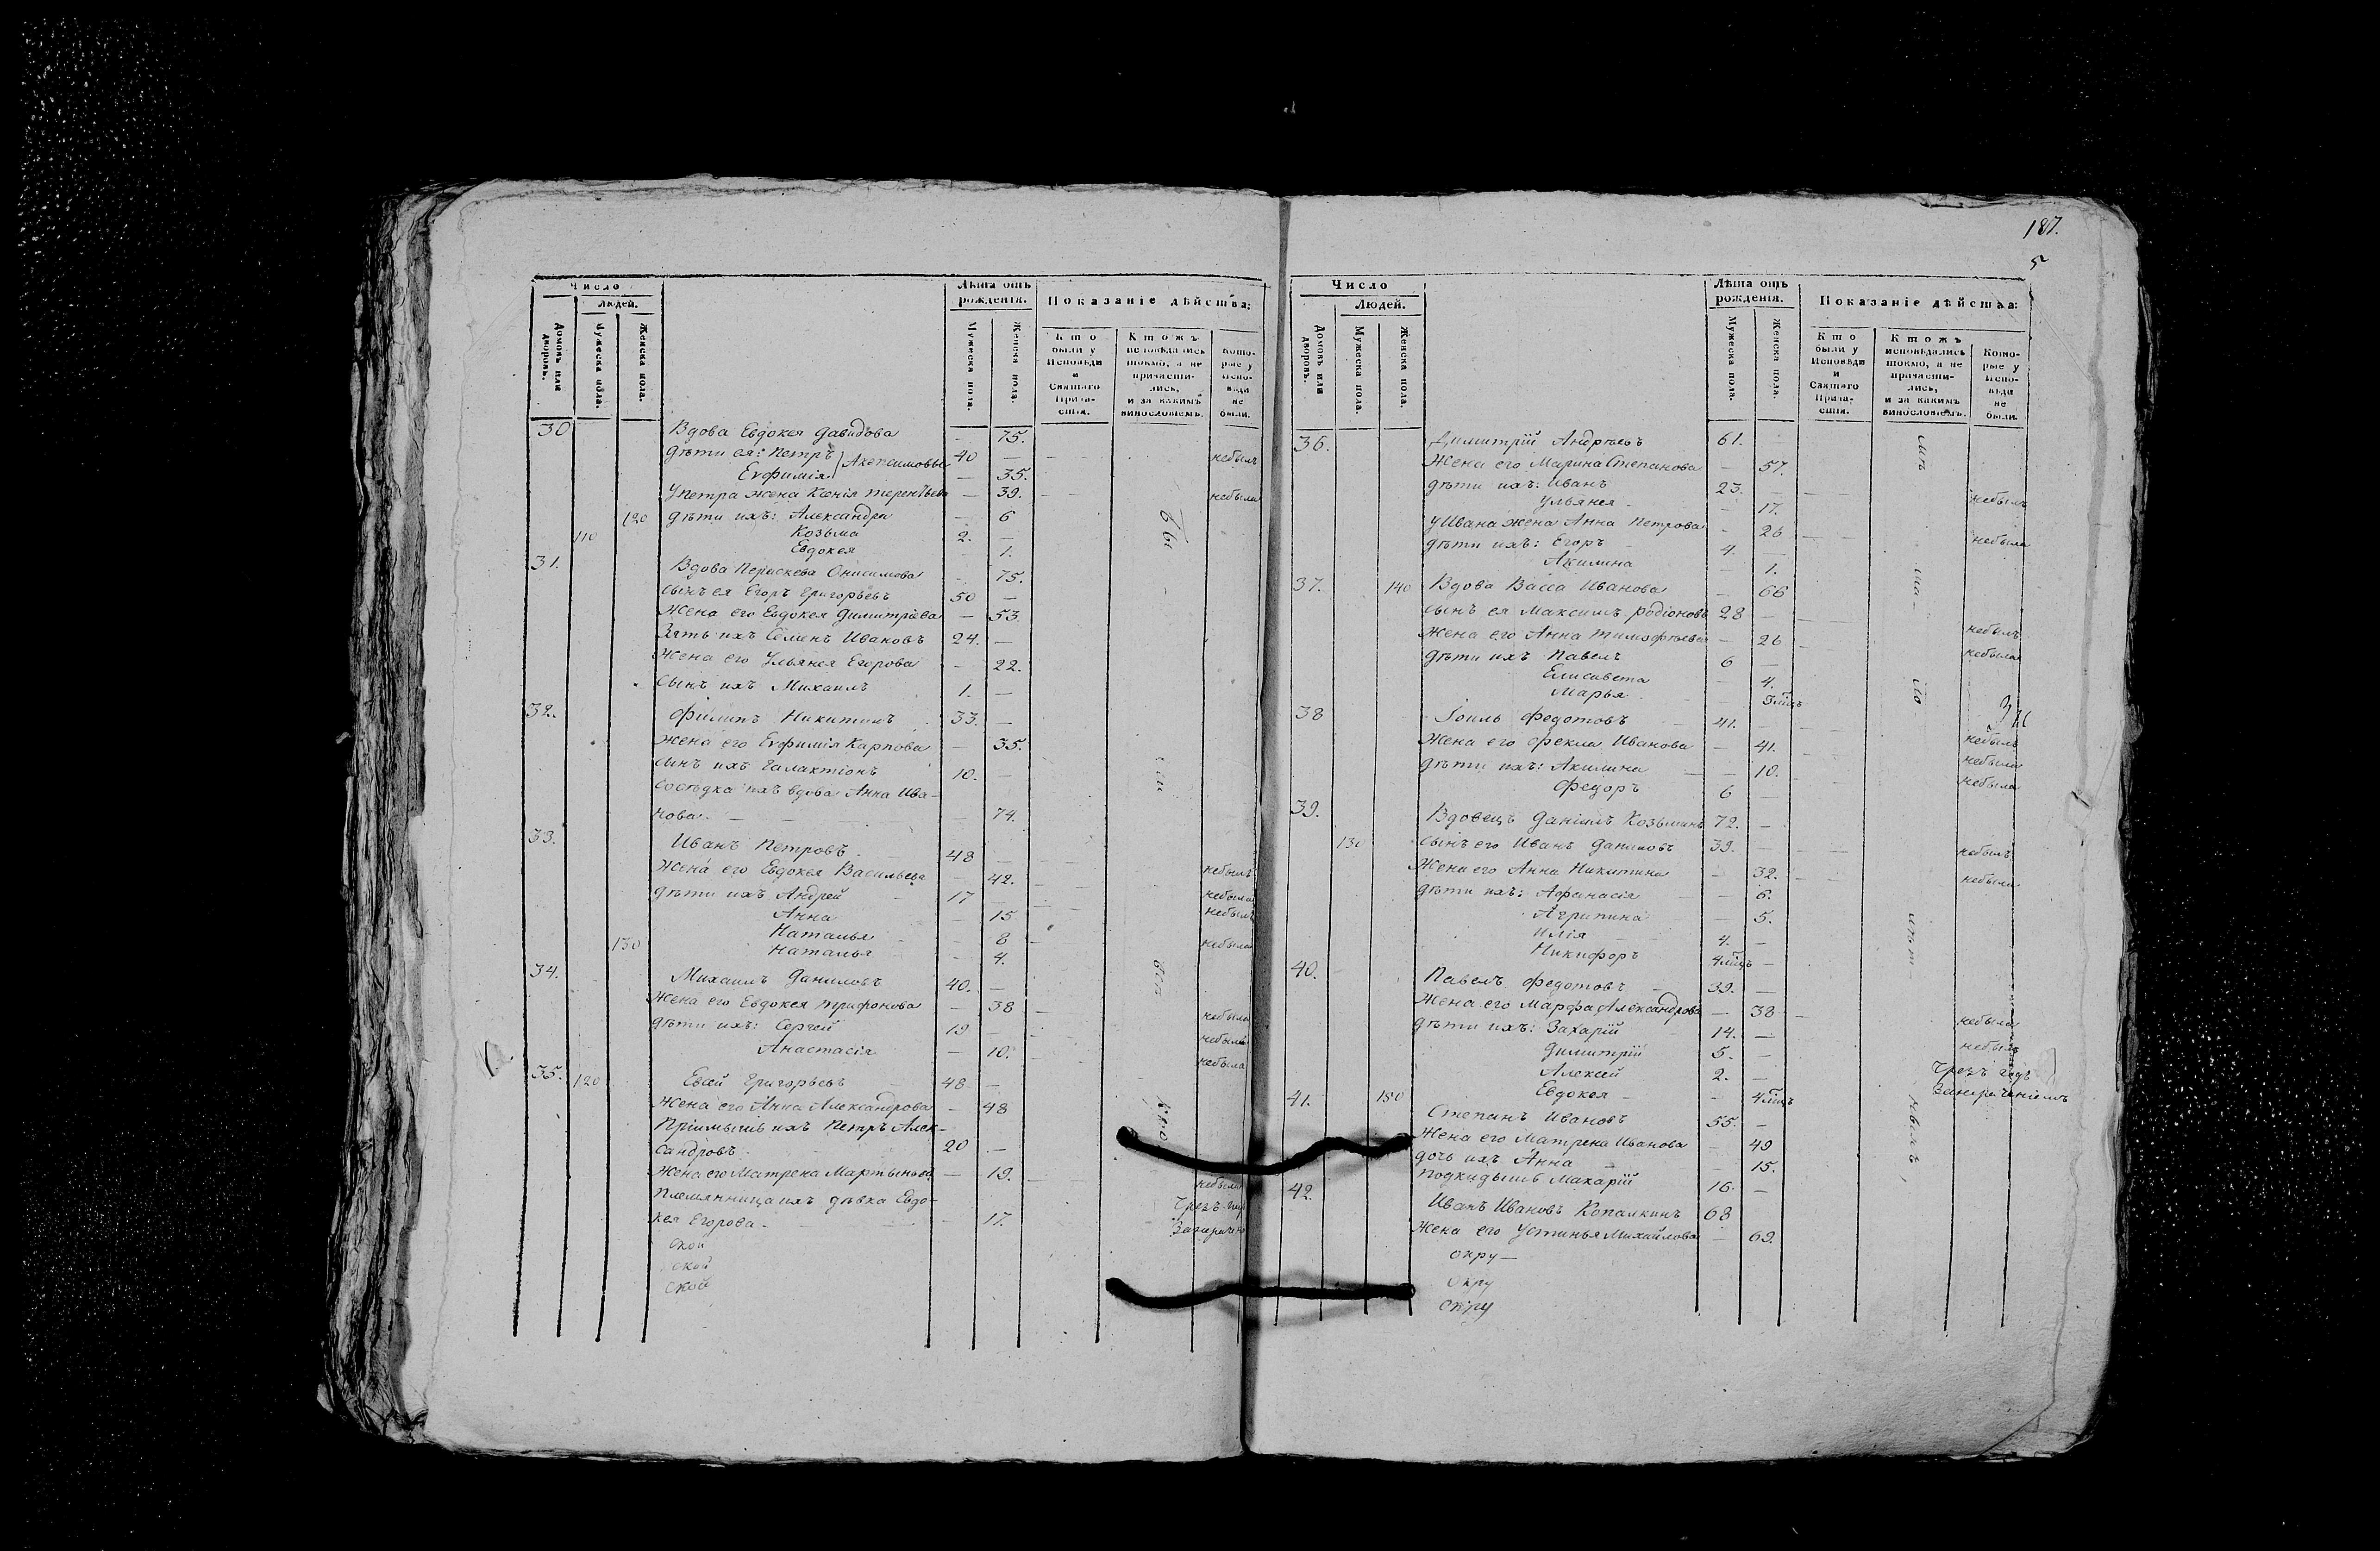 Число
Людей.
Домовъ или дворовъ.
Мужеска пола.
Женска пола.
Лѣта отъ рожденія.
Мужеска пола.
Женска пола.
Показаніе дѣйства:
Кто были у Исповѣди и Святаго Прича-стія.
Ктожъ исповѣдались токмо, а не причасти-лись, и за какимъ винословіемъ.
Кото-рые у Испо-вѣди не были.
30 Вдова Евдокея Давидова — 75.
Дѣти ея: Петръ } Акепсимовы 40 — небылъ
Евфимія — 35.
У Петра жена Ксенія Терентьева — 39. небыла
120 Дѣти ихъ: Александра — 6
110 Козьма 2. —
Евдокея — 1.
31. Вдова Параскева Онисимова — 75.
Сынъ ея Егоръ Григорьевъ 50 —
Жена его Евдокея Димитріева — 53.
Зять ихъ Семенъ Ивановъ 24. —
Жена его Ульянея Егорова — 22.
Сынъ ихъ Михаилъ 1. —
32. Филипъ Никитинъ 33. —
Жена его Евфимія Карпова — 35.
Сынъ ихъ Галактіонъ 10. —
Сосѣдка ихъ вдова Анна Ива-
нова — 74.
33. Иванъ Петровъ 48 —
Жена его Евдокея Васильева — 42. небылъ
Дѣти ихъ Андрей 17 — небыла
Анна — 15 небылъ
Наталья — 8
130 Наталья — 4. небыла
34. Михаилъ Даниловъ 40. —
Жена его Евдокея Трифонова — 38
Дѣти ихъ: Сергей 19 — небыла
Анастасія — 10. небылъ
35. 120 Евсей Григорьевъ 48 — небыла
Жена его Анна Александрова — 48
Пріимышъ ихъ Петръ Алек-
сандровъ 20 —
Жена его Матрена Мартынова — 19.
Племянница ихъ дѣвка Евдо- небыла
кея Егорова — 17. Чрезъ
ской
ской
ской
187.
5
Число
Людей.
Домовъ или дворовъ.
Мужеска пола.
Женска пола.
Лѣта отъ рожденія.
Мужеска пола.
Женска пола.
Показаніе дѣйства:
Кто были у Исповѣди и Святаго Прича-стія.
Ктожъ исповѣдались токмо, а не причасти-лись, и за какимъ винословіемъ.
Кото-рые у Испо-вѣди не были.
36. Димитрій Андреевъ 61. —
Жена его Марина Степанова — 57.
Дѣти ихъ: Иванъ 23. — небылъ
Ульянея — 17.
У Ивана жена Анна Петрова — 26 небыла
Дѣти ихъ: Егоръ 4. —
Акилина — 1.
37. 140 Вдова Васса Иванова — 66
Сынъ ея Максимъ Родіоновъ 28 — небылъ
Жена его Анна Тимофѣева — 26 небыла
Дѣти ихъ Павелъ 6 —
Елисавета — 4.
Марья — 3 мѣцъ
38 Іоиль Федотовъ 41. — небылъ
Жена его Фекла Иванова — 41. небыла
Дѣти ихъ: Акилина — 10. небыла
Федоръ 6 —
39. Вдовецъ Даніилъ Козьминъ 72. —
130 Сынъ его Иванъ Даниловъ 39. — небылъ
Жена его Анна Никитина — 32. небыла
Дѣти ихъ: Афанасія — 6.
Агрипина — 5.
Илія 4. —
Никифоръ 4 мѣцъ —
40. Павелъ Федотовъ 39. —
Жена его Марфа Александрова — 38 небыла
Дѣти ихъ: Захарій 14. — небылъ
Димитрій 5. —
Алексей 2. — Чрезъ годъ
150 Евдокея — 4 мѣцъ
41. Степанъ Ивановъ 55. —
Жена его Матрена Иванова — 49
Дочь ихъ Анна — 15.
Подкидышъ Макарій 16. —
42. Иванъ Ивановъ Копалкинъ 68
Жена его Устинья Михайлова — 69.
окру—
окру
окру